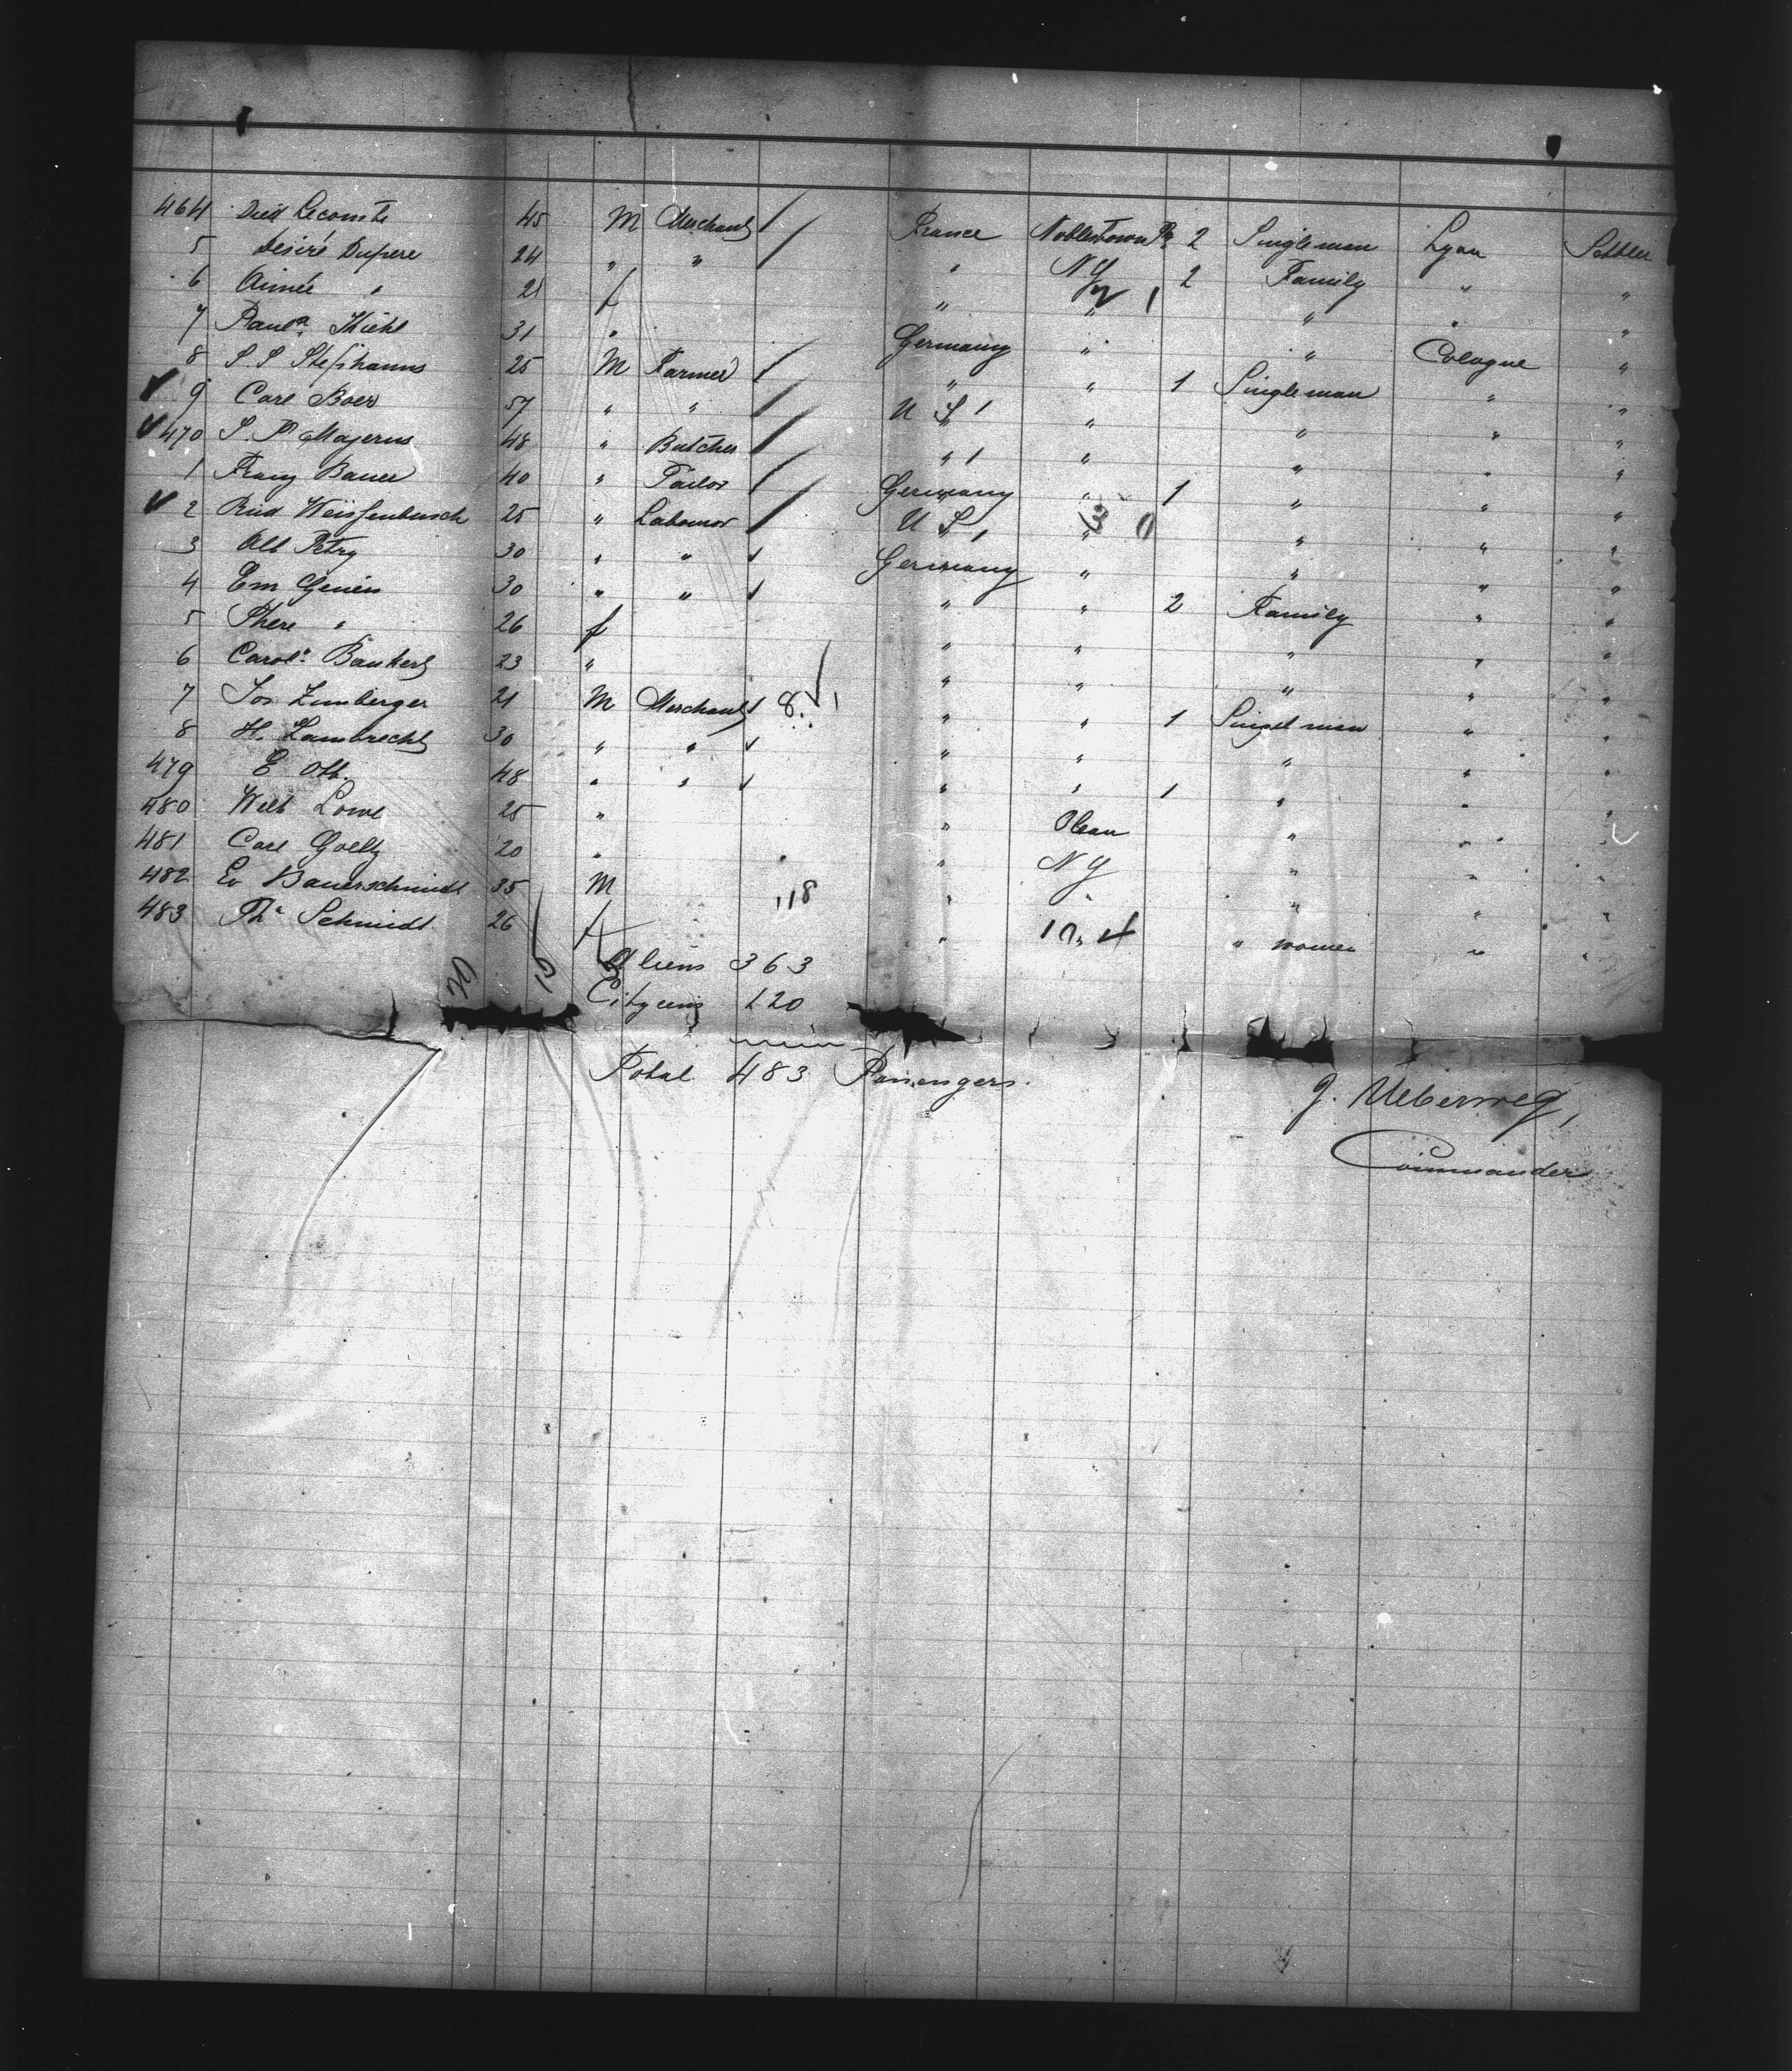 464 Died Lecomte 45 M Merchant France Noblestown Pa 2 Single man Lyon Settler
5 Desiré Dupere 24 " " " NY 2 Family " "
6 Aimée " 21 f " " " " "
7 Paula Thiehl 31 " Germany " " Cologne "
8 P. P. Stephanus 25 M Farmer " " 1 Single man " "
9 Carl Boes 57 " " U S 1 " " " "
470 P. P. Majerus 48 " Butcher " 1 " " " "
1 Franz Bauer 40 " Tailor Germany " 1 " " "
2 Rud Weissenbusch 25 " Labouror U S 1 " " " "
3 Alb Petry 30 " " Germany " " " "
4 Em Genien 30 " " " " 2 Family " "
5 Phere " 26 f " " " " "
6 Carol. Bankert 23 " " " " " "
7 Jos Zimberger 21 M Merchant 8 " " 1 Singel man " "
8 H. Lambrecht 30 " " " " " " "
479 E Ott. 48 " " " " 1 " " "
480 Wilb Lowe 25 " " Olean " " "
481 Carl Goeltz 20 " " NY " " "
482 Ev Bauerschmidt 35 M 118 " " " " "
483 Th. Schmidt 26 f " 10 4 " women " "
Aliens 363
Citycens 120
Total 483 Passengers.
J. Ueberweg,
Commander